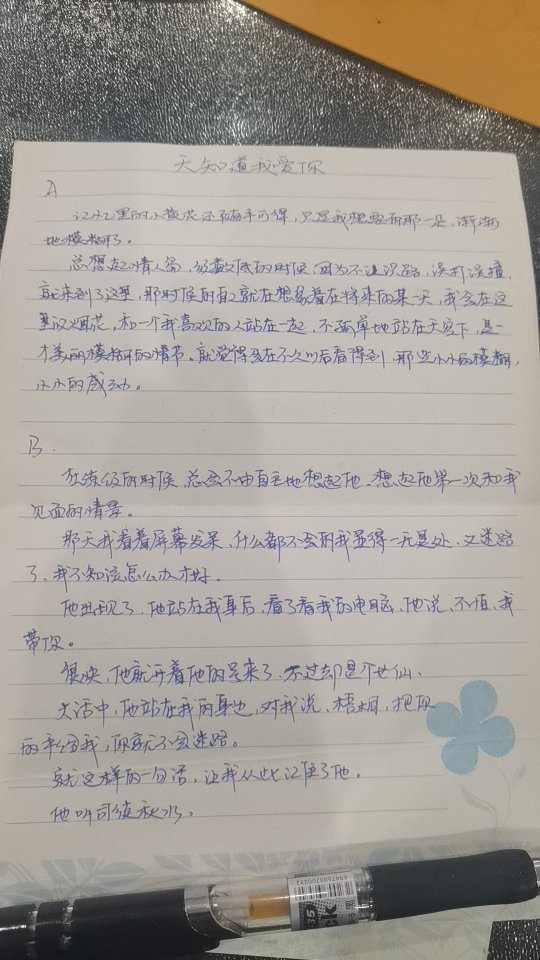 天知道我爱你
A
记忆里的小黄花还有随手可得,只是我想要的那一朵,渐渐
地模糊了。
总想起情人岛,级数低的时候,因为不认识路,误打误撞,
就来到了这里,那时候的自己就在想象着在将来的某一天,我会在这
里放烟花,和一个我喜欢的人站在一起,不孤单地站在天空下,是一
才美丽模糊的情节,就觉得会在不久以后看得到,那些小小的模糊,
小小的感动。
B.
在练级的时候,总会不由自主地想起他。想起他第一次和我
见面的情景。
那天我看着屏幕发呆,什么都不会的我显得一无是处,又迷路
了,我不知该怎么办才好。
他出现了,他站在我身后,看了看我的电脑,他说,不怕,我
带你。
很快,他就开着他的号来了,不过却是个女仙。
文活中,他站在我的身边,对我说,梧桐,把你
的手给我,你就不会迷路。
就这样的一句话,让我从此记住了他。
他叫司徒秋水。
6947503700232
35
CK